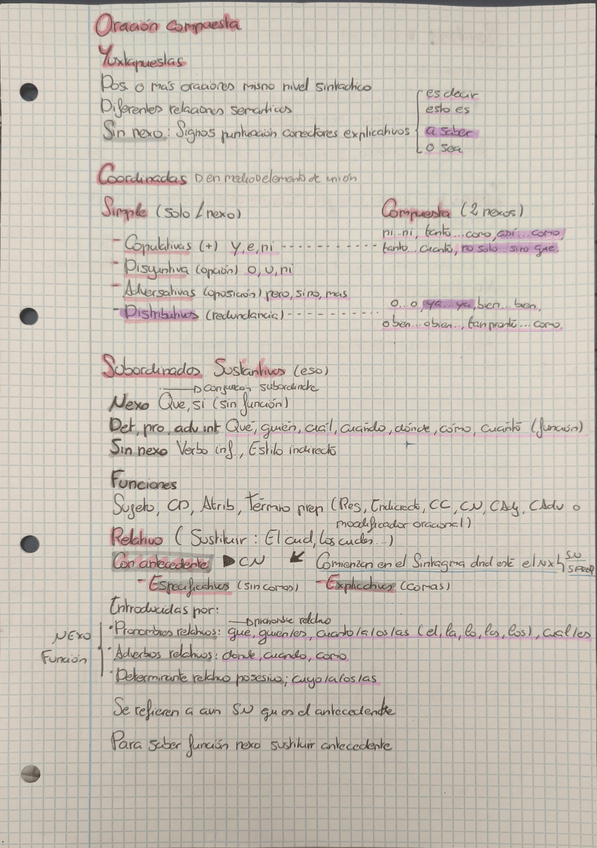 Oración compuesta
Yuxtapuestas
Dos o más oraciones mismo nivel sintáctico
Diferentes relaciones semánticas
Sin nexo: Signos puntuación conectores explicativos
es decir
esto es
a saber
o sea
Coordinadas en medio elemento de unión
Simple (solo 1 nexo)
- Copulativas (+) y, e, ni
- Disyuntiva (opción) o, u, ni
- Adversativas (oposición) pero, sino, mas
- Distributivas (redundancia)
Compuesta (2 nexos)
ni..ni, tanto...como, así...como,
tanto..cuanto, no solo..sino que
o..o, ya...ya, bien..bien,
o bien...o bien.., tan pronto...como,
Subordinadas Sustantivas (eso)
conjunción subordinante
Nexo Que, si (sin función)
Det, pro, adv int Qué, quién, cuál, cuándo, dónde, cómo, cuánto (función)
Sin nexo Verbo inf, Estilo indirecto
Funciones
Sujeto, CD, Atrib, término prep (Reg, Indirecto, CC, CN, CAg, CAdv o
modificador oracional)
Relativo (Sustituir: El cual, los cuales...)
Con antecedente CN
Comienzan en el Sintagma dnd esté el NX
SN
SPREP
- Especificativas (sin comas) - Explicativas (comas)
Introducidas por:
pronombre relativo
· Pronombres relativos: que, quien/es, cuanto/a/os/as (el, la, lo, los, las), cual/es
NEXO
Función
· Adverbios relativos: donde, cuando, como
· Determinante relativo posesivo: cuyo/a/os/as
Se refieren a un SN que es el antecedente
Para saber función nexo sustituir antecedente